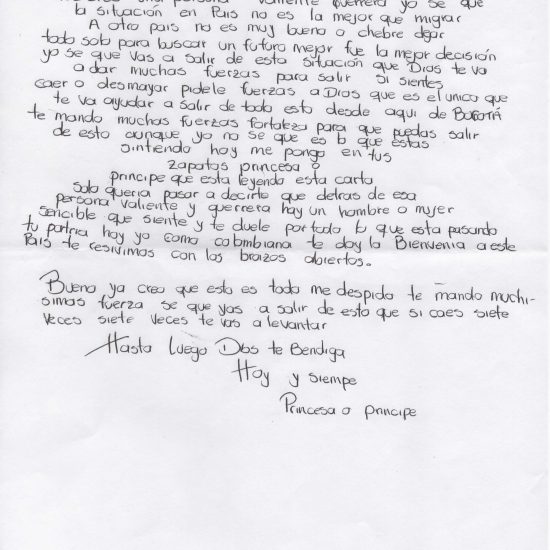 una persona valiente guerrera yo se que
la situación en Pais no es la mejor que migrar
A otro pais no es muy bueno o chebre dejar
todo solo para buscar un futuro mejor fue la mejor decisión
yo se que vas a salir de esta situación que Dios te va
a dar muchas fuerzas para salir si sientes
caer o desmayar pidele fuerzas a Dios que es el unico que
te va ayudar a salir de todo esto desde aqui de BOGOTÁ
te mando muchas fuerzas fortaleza para que puedas salir
de esto aunque yo no se que es lo que estas
sintiendo hoy me pongo en tus
zapatos princesa o
principe que esta leyendo esta carta
Solo queria pasar a decirte que detras de esa
persona valiente y guerrera hay un hombre o mujer
sencible que siente y te duele por todo lo que esta pasando
tu patria hoy yo como colombiana te doy la Bienvenia a este
Pais te resivimos con los brazos abiertos.
Bueno ya creo que esto es todo me despido te mando muchi-
simas fuerza se que vas a salir de esto que si caes siete
veces siete veces te vas a levantar
Hasta Luego Dios te Bendiga
Hoy y siempe
Princesa o principe